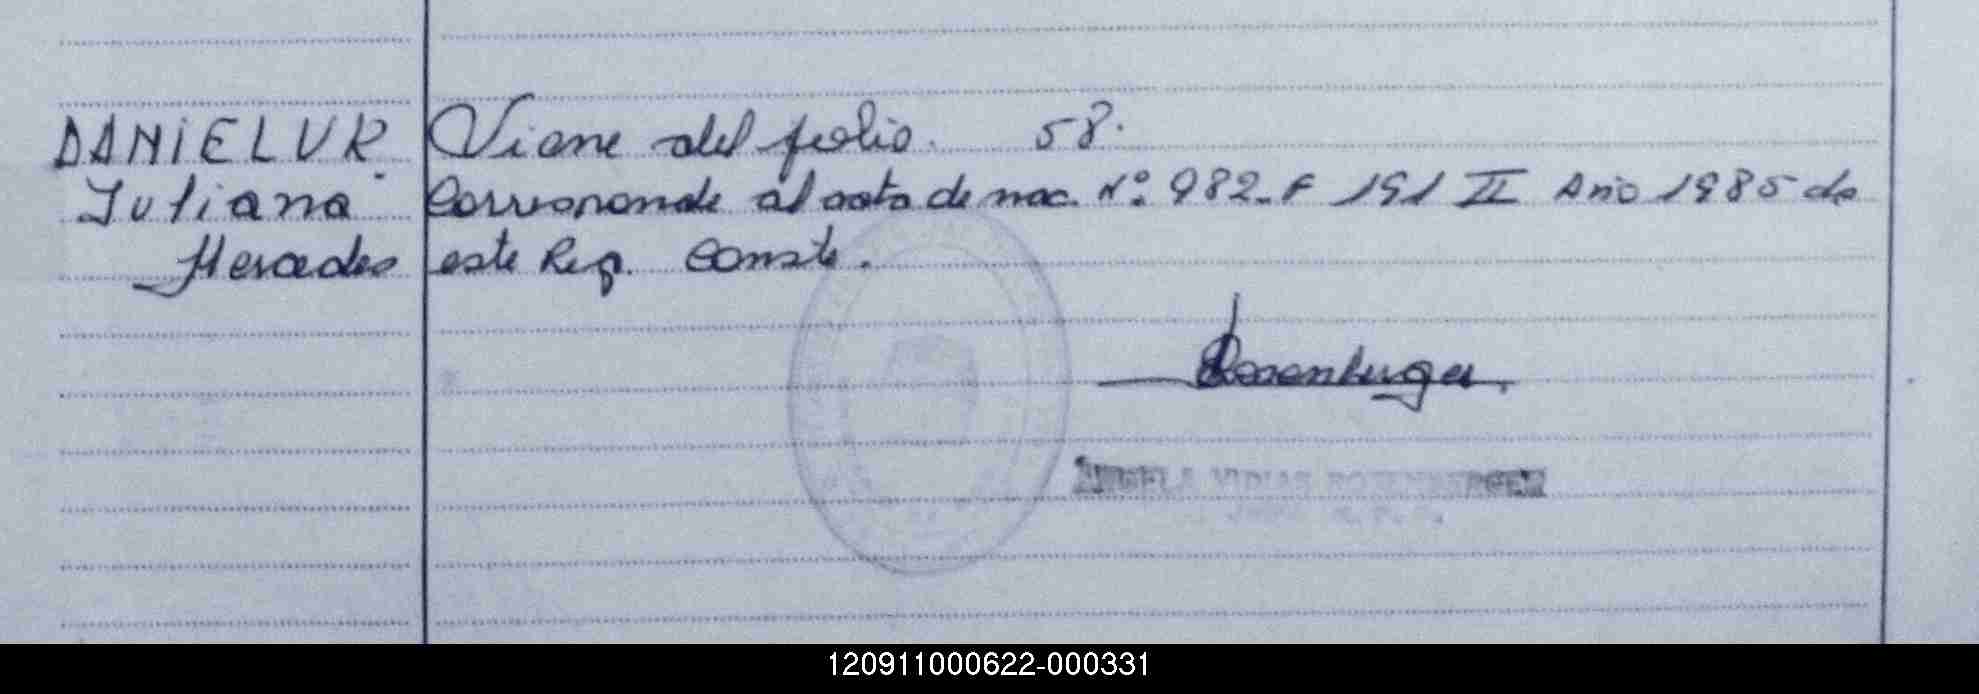 DANIELUK.
Juliana
Mercedes
Viene del folio. 58.
Corresponde al acta de nac. Nº. 982-F 191 II Año 1985 de
este Reg. Conste.
Rosenberger
ANGELA VIDIAS ROSENBERGER
120911000622-000331